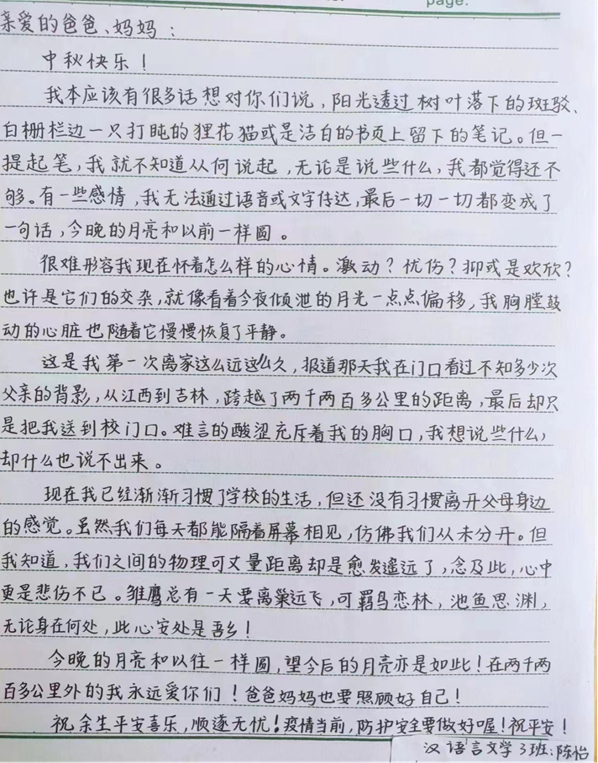 page:
亲爱的爸爸、妈妈:
中秋快乐!
我本应该有很多话想对你们说,阳光透过树叶落下的斑驳、
白栅栏边一只打盹的狸花猫或是洁白的书页上留下的笔记。但一
提起笔,我就不知道从何说起,无论是说些什么,我都觉得还不
够。有一些感情,我无法通过语音或文字传达,最后一切一切都变成了
一句话,今晚的月亮和以前一样圆。
很难形容我现在怀着怎么样的心情。激动?忧伤?抑或是欢欣?
也许是它们的交杂,就像看着今夜倾泄的月光一点点偏移,我胸膛鼓
动的心脏也随着它慢慢恢复了平静。
这是我第一次离家这么远这么久,报道那天我在门口看过不知多少次
父亲的背影,从江西到吉林,跨越了两千两百多公里的距离,最后却只
是把我送到校门口。难言的酸涩充斥着我的胸口,我想说些什么,
却什么也说不出来。
现在我已经渐渐习惯了学校的生活,但还没有习惯离开父母身边
的感觉。虽然我们每天都能隔着屏幕相见,仿佛我们从未分开。但
我知道,我们之间的物理可丈量距离却是愈发遥远了,念及此,心中
更是悲伤不已。雏鹰总有一天要离巢远飞,可羁鸟恋林,池鱼思渊,
无论身在何处,此心安处是吾乡!
今晚的月亮和以往一样圆,望今后的月亮亦是如此!在两千两
百多公里外的我永远爱你们!爸爸妈妈也要照顾好自己!
祝余生平安喜乐,顺遂无忧!疫情当前,防护安全要做好喔!祝平安!
汉语言文学3班:陈怡